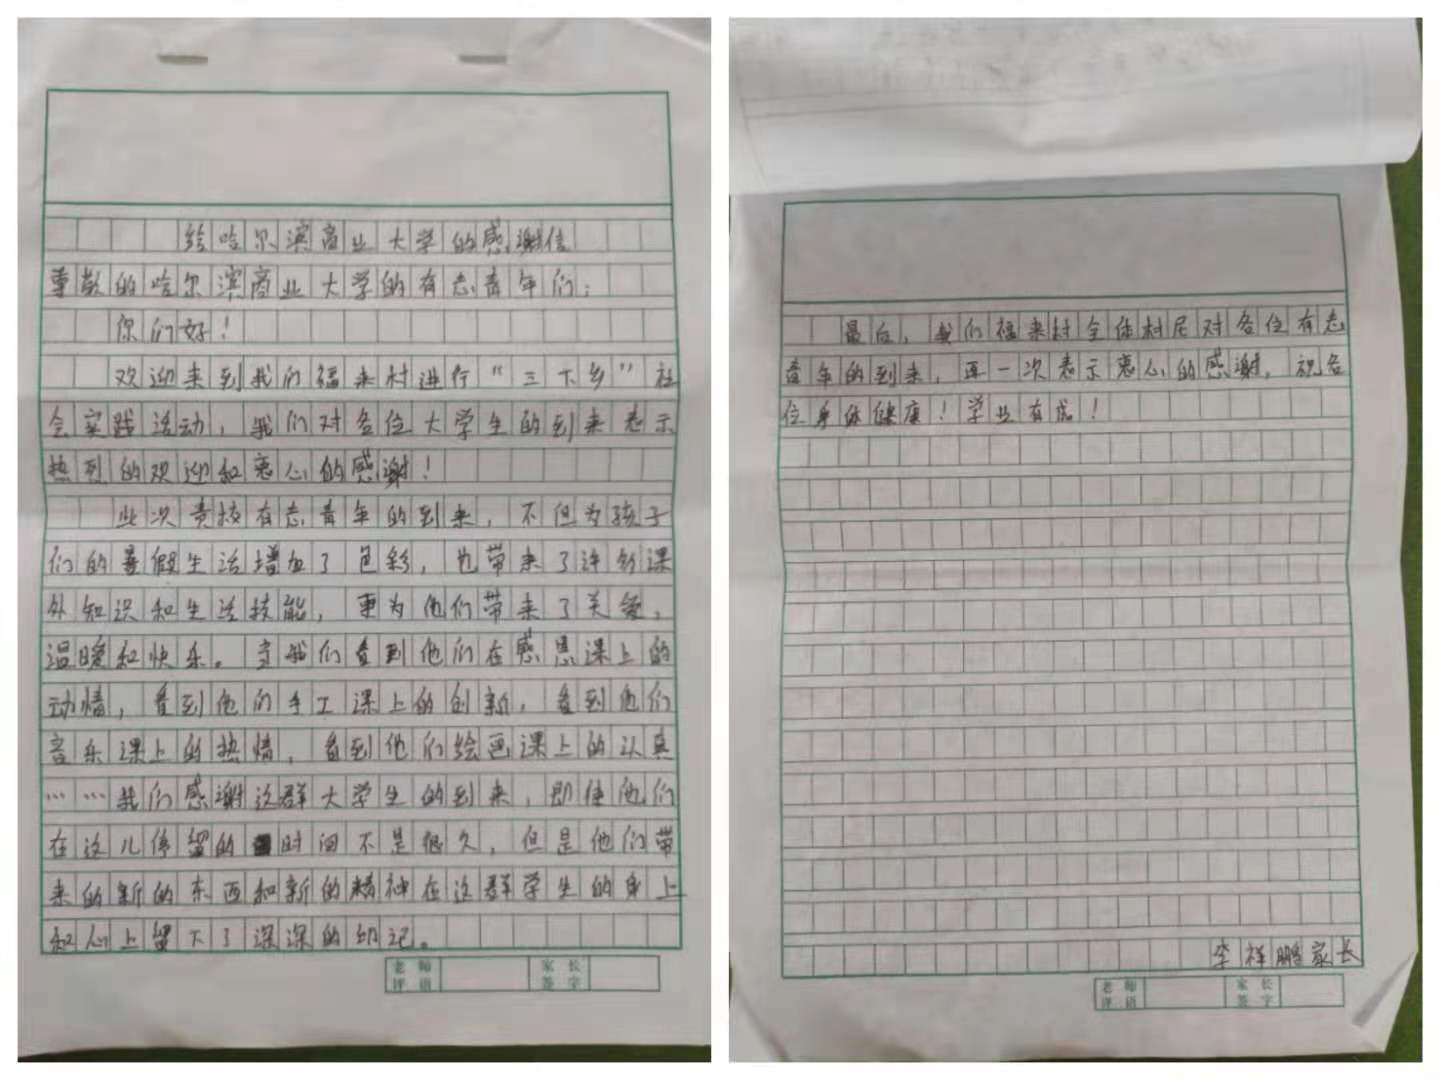 给哈尔滨商业大学的感谢信
尊敬的哈尔滨商业大学的有志青年们：
你们好！
欢迎来到我们福来村进行“三下乡”社
会实践活动，我们对各位大学生的到来表示
热烈的欢迎和衷心的感谢！
此次贵校有志青年的到来，不但为孩子
们的暑假生活增加了色彩，也带来了许多课
外知识和生活技能，更为他们带来了关爱，
温暖和快乐。当我们看到他们在感恩课上的
动情，看到他们手工课上的创新，看到他们
音乐课上的热情，看到他们绘画课上的认真
……我们感谢这群大学生的到来，即使他们
在这儿停留的时间不是很久，但是他们带
来的新的东西和新的精神在这群学生的身上
和心上留下了深深的印记。
老师
评语
家长
签字
最后，我们福来村全体村民对各位有志
青年的到来，再一次表示衷心的感谢，祝各
位身体健康！学业有成！
李祥鹏家长
老师
评语
家长
签字